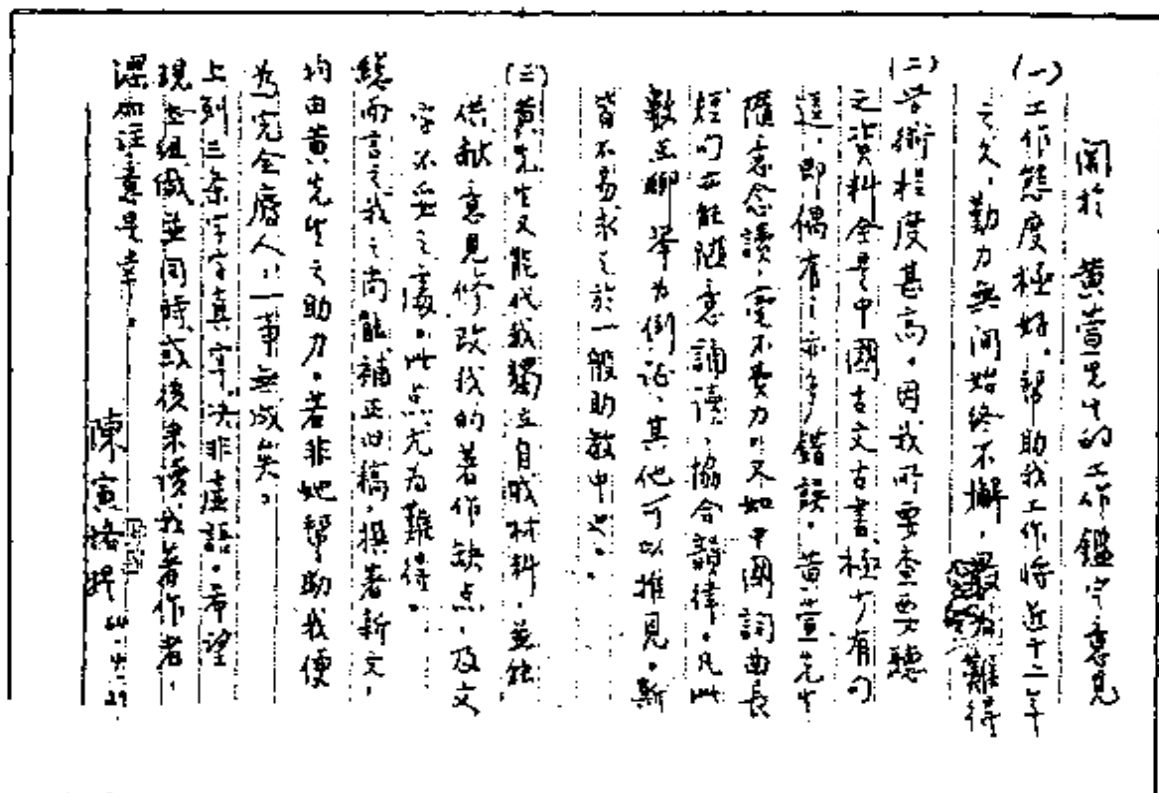 關於 黃萱先生的工作鑑定意見
(一)工作態度極好。帮助我工作将近十二年
之久,勤力無间始终不懈,最为難得
(二)学術程度甚高。因我所要查要聽
之资料全是中國古文古書,極少有句
逗,即偶有之亦多錯誤。黃萱先生
隨意念讀,毫不費力。又如中國詞曲長
短句亦能隨意誦读,協合韻律。凡此
數点聊举为例证,其他可以推見。斯
皆不易求之於一般助教中也。
(三)黃先生又能代我獨立自找材料,並能
供献意見修改我的著作缺点,及文
字不妥之處。此点尤为難得。
總而言之,我之尚能補正旧稿,撰著新文,
均由黃先生之助力。若非她幫助我便
为完全廢人,一事無成矣。
上列三条字字真实,决非虛語。希望
現在組織並同時或後来讀我著作者,
深加注意是幸。
陳寅恪 64.4.29